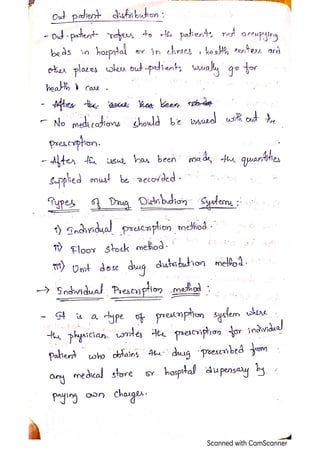 Out patient distribution :
- Out-patient refers to the patients not occupying
beds in hospital or in clinics, health centers and
other places when out-patients usually go for
health care.
- After the issue has been made
- No medications should be issued with out the
prescription.
- After the issue has been made, the quantities
supplied must be recorded.
Types of Drug Distribution Systems :
i) Individual prescription method.
ii) Floor stock method.
iii) Unit dose drug distribution method.
→ Individual Prescription method :
- It is a type of prescription system where
the physician writes the prescription for individual
patient who obtains the drug prescribed from
any medical store or hospital dispensary by
paying own charges.
Scanned with CamScanner